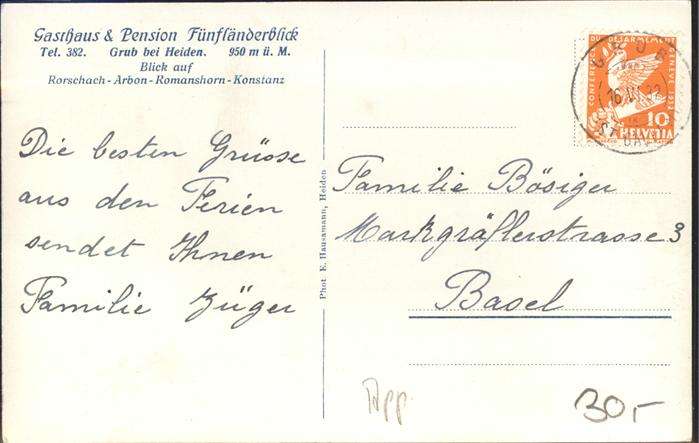 Gasthaus & Pension Fünfländerblick
Tel. 382. Grub bei Heiden. 950 m ü. M.
Blick auf
Rorschach - Arbon - Romanshorn - Konstanz
Die besten Grüsse
aus den Ferien
sendet Ihnen
Familie Züger
Phot E. Hausamann, Heiden
GRUB
ST.
10
HELVETIA
Familie Bösiger
Markgräflerstrasse 3
Basel
App.
30.-